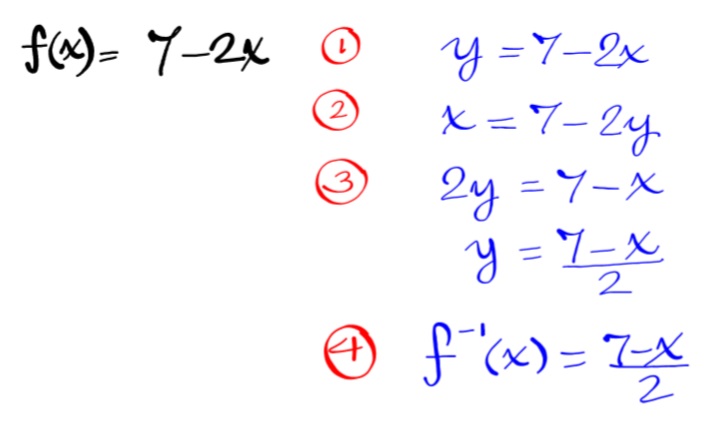 f(x)= 7-2x ① y=7-2x
② x=7-2y
③ 2y=7-x
y=\frac{7-x}{2}
④ f⁻¹(x)=\frac{7-x}{2}